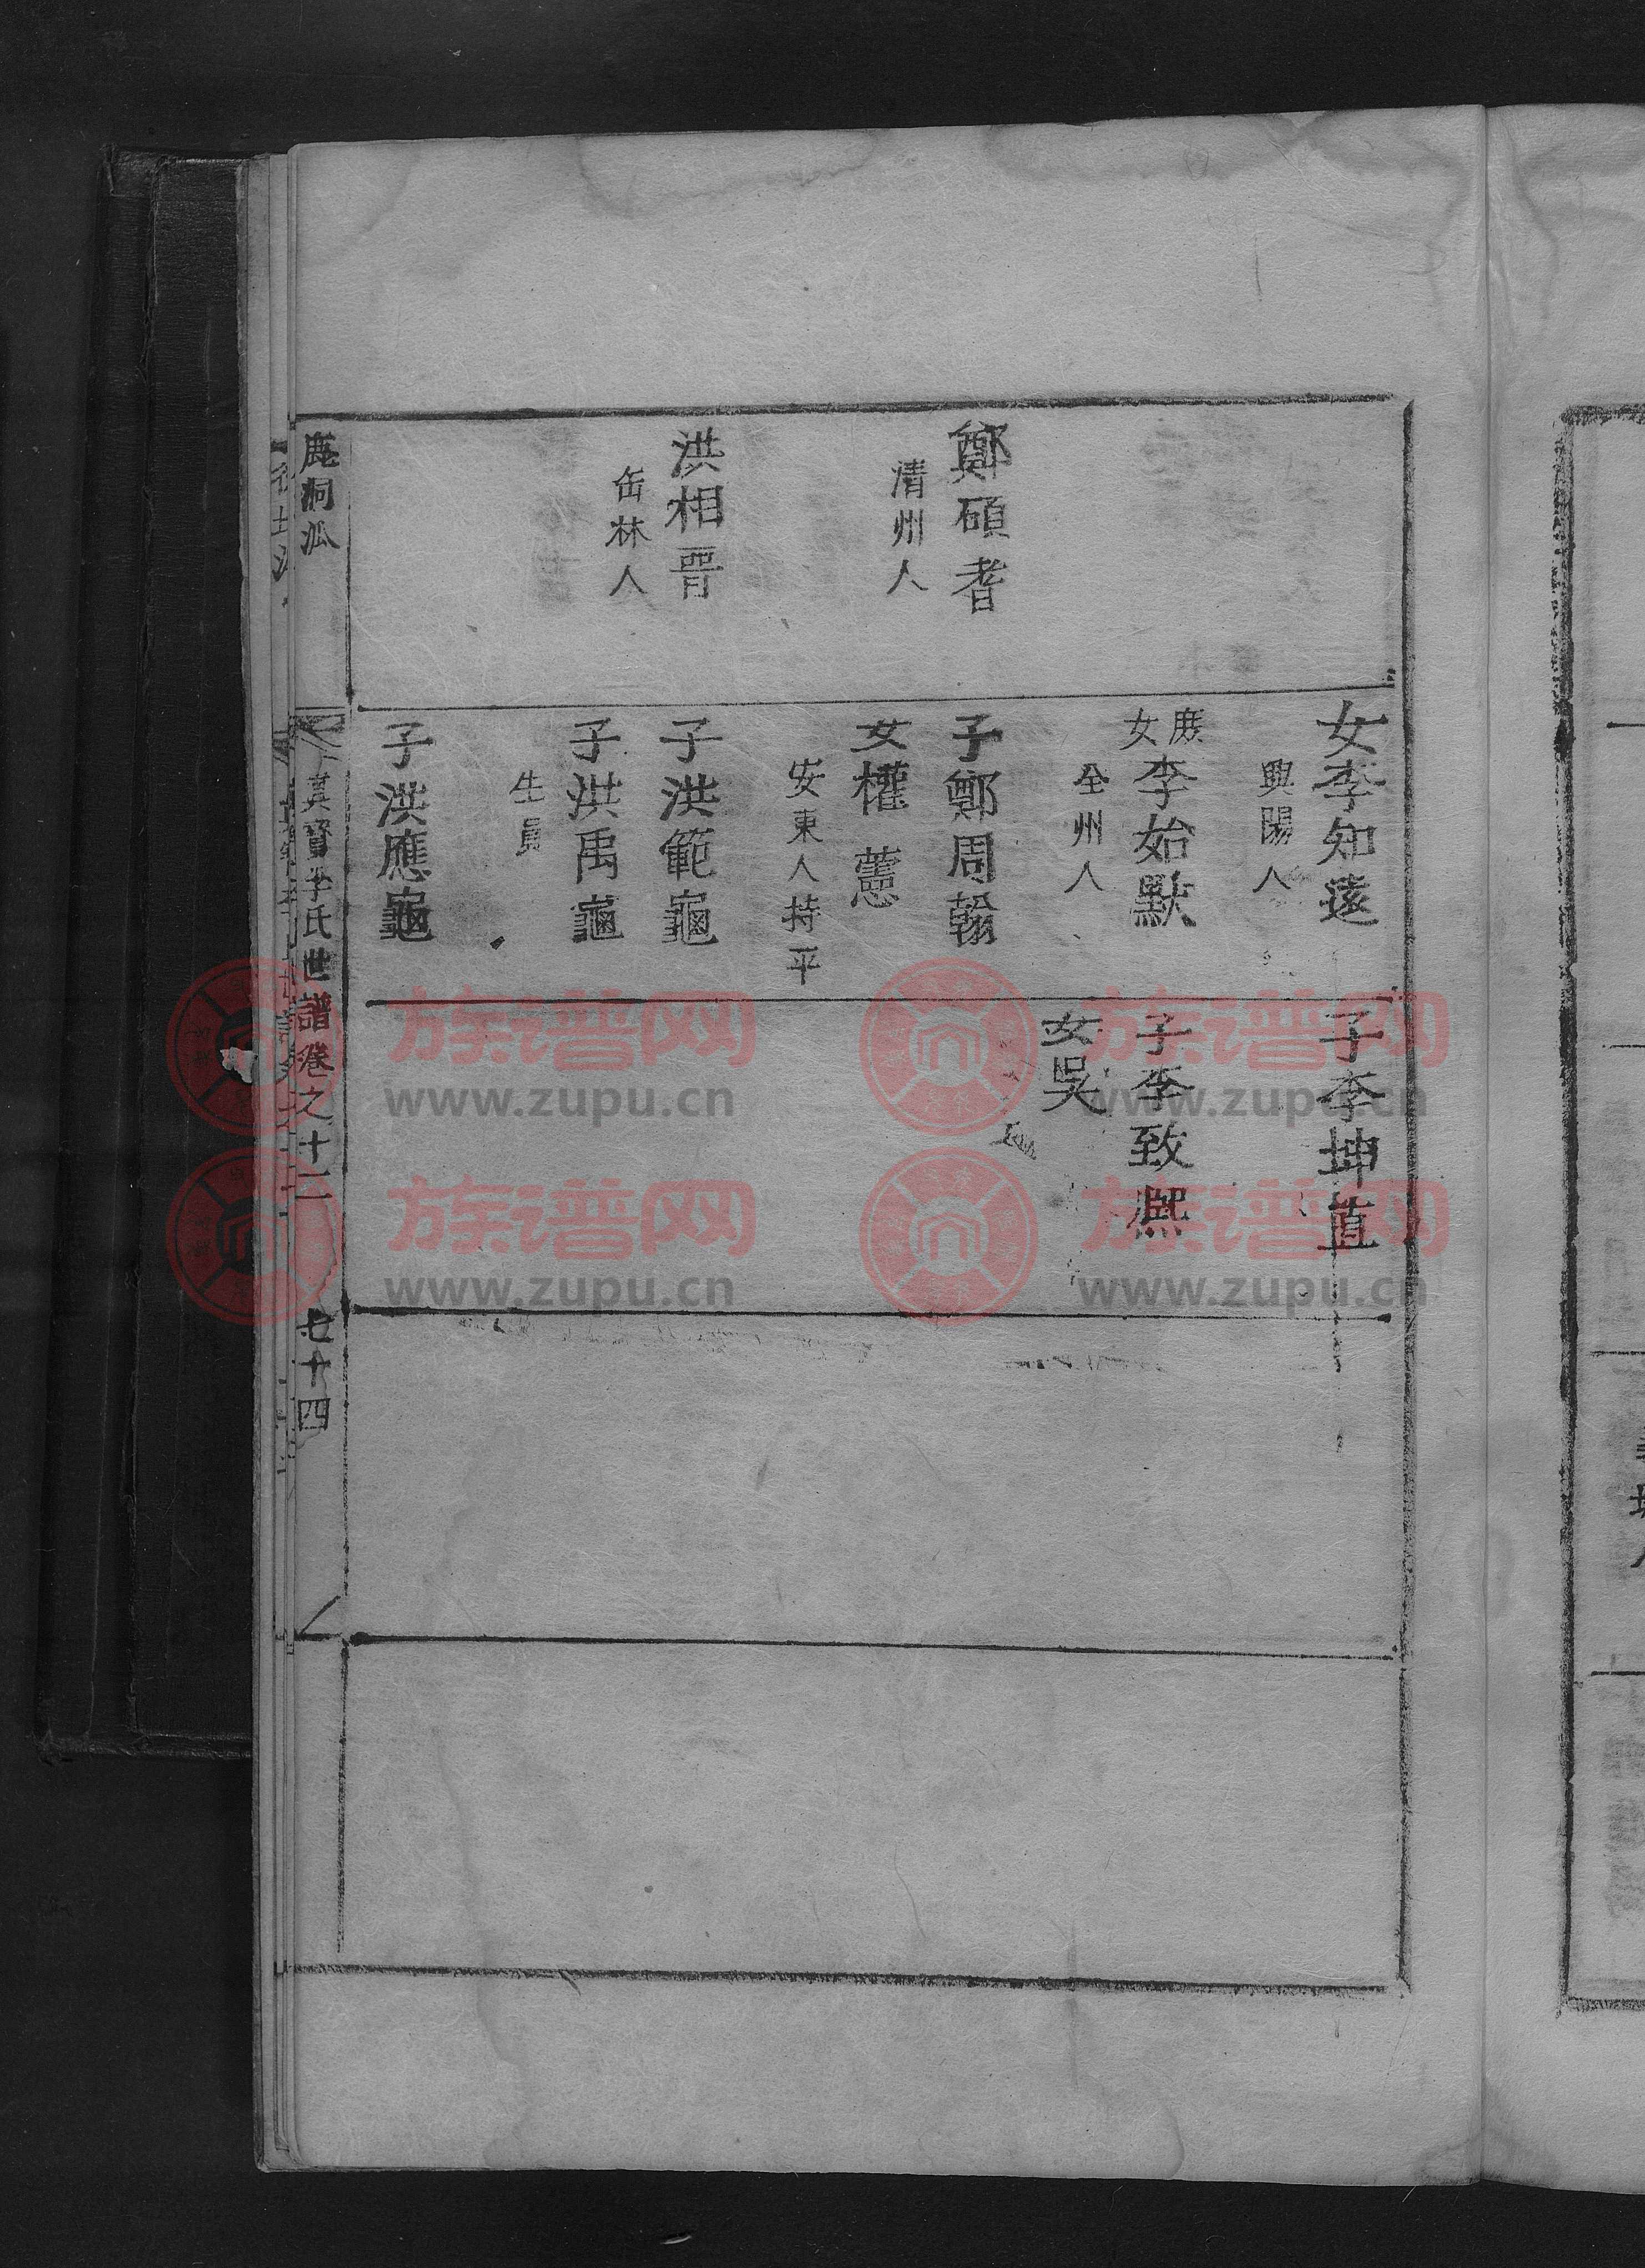 鄭碩耉
清州人
洪相晋
缶林人
女李知遠
興陽人
庶女李始默
全州人
子鄭周翰
女權 藼
安東人持平
子洪範龜
子洪禹龜
生員
子洪應龜
子李坤直
子李致熙
女吳
鹿洞派
眞寶李氏世譜卷之十二
七十四
族谱网
www.zupu.cn
族谱网
www.zupu.cn
族谱网
www.zupu.cn
族谱网
www.zupu.cn